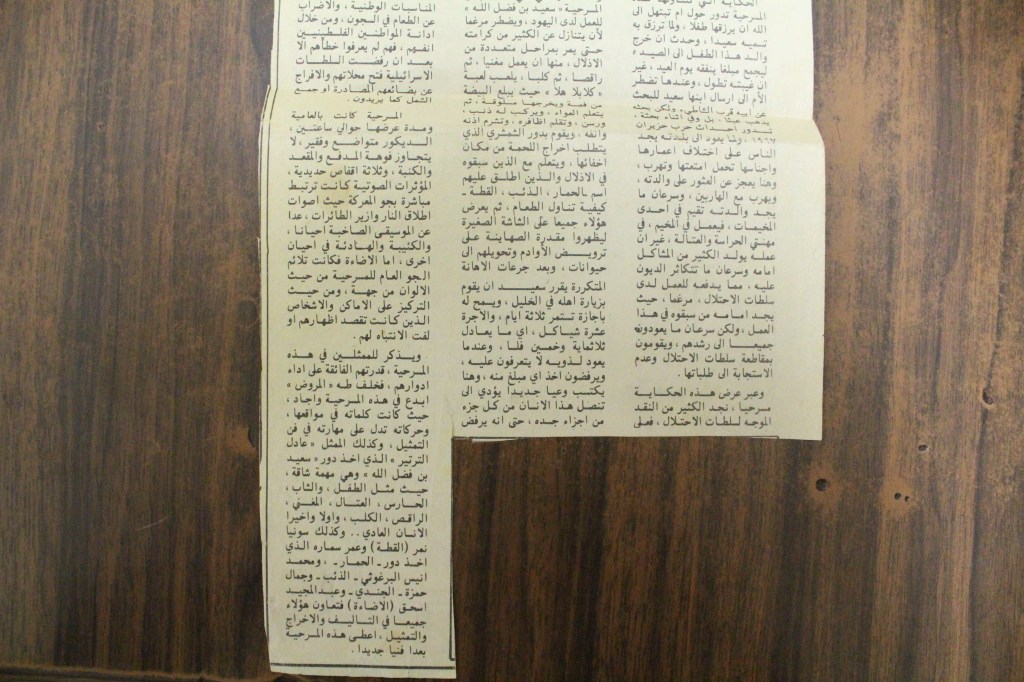 المسرحية تدور حول ام تبتهل الى
الله ان يرزقها طفلا ، ولما ترزق به
تسميه سعيدا ، وحدث ان خرج
والد هذا الطفل الى الصيد
ليجمع مبلغا ينفقه يوم العيد ، غير
ان غيبته تطول ، وعندها تضطر
الأم الى ارسال ابنها سعيد للبحث
عن ابيه قرب الشاطىء ولكن بحثه
يذهب عبثا ، بل وفي اثناء بحثه ،
تدور احداث حرب حزيران
١٩٦٧ ، ولما يعود الى بلدته يجد
الناس على اختلاف اعمارها
واجناسها تحمل امتعتها وتهرب ،
وهنا يعجز عن العثور على والدته ،
ويهرب مع الهاربين ، وسرعان ما
يجد والدته تقيم في احدى
المخيمات ، فيعمل في المخيم ، في
مهنتي الحراسة والعتالة ، غير ان
عمله يولد الكثير من المشاكل
امامه وسرعان ما تتكاثر الديون
عليه ، مما يدفعه للعمل لدى
سلطات الاحتلال ، مرغما ، حيث
يجد امامه من سبقوه في هذا
العمل ، ولكن سرعان ما يعودون
جميعا الى رشدهم ، ويقومون
بمقاطعة سلطات الاحتلال وعدم
الاستجابة الى طلباتها .
وعبر عرض هذه الحكاية
مسرحيا ، نجد الكثير من النقد
الموجه لسلطات الاحتلال ، فعلى
المسرحية « سعيد بن فضل الله »
للعمل لدى اليهود ، ويضطر مرغما
لأن يتنازل عن الكثير من كرامته
حتى يمر بمراحل متعددة من
الاذلال ، منها ان يعمل مغنيا ، ثم
راقصا ، ثم كلبا ، يلعب لعبة
« كلابلا هلا » حيث يبلع البيضة
من فمه ويخرجها مسلوقة ، ثم
يتعلم العواء ، ويركب له ذنب ،
ورسن ، وتقلم اظافره ، وتشرم اذنه
وانفه ، ويقوم بدور الشمشري الذي
يتطلب اخراج اللحمة من مكان
اخفائها ، ويتعلم مع الذين سبقوه
في الاذلال والذين اطلق عليهم
اسم ـ الحمار ، الذئب ، القطة ـ
كيفية تناول الطعام ، ثم يعرض
هؤلاء جميعا على الشاشة الصغيرة
ليظهروا مقدرة الصهاينة على
ترويض الأوادم وتحويلهم الى
حيوانات ، وبعد جرعات الاهانة
المتكررة يقرر سعيد ان يقوم
بزيارة اهله في الخليل ، ويسمح له
باجازة تستمر ثلاثة ايام ، والاجرة
عشرة شياكل ، اي ما يعادل
ثلاثماية وخمسين فلسا ، وعندما
يعود لذويه لا يتعرفون عليه ،
ويرفضون اخذ اي مبلغ منه ، وهنا
يكتسب وعيا جديدا يؤدي الى
تنصل هذا الانسان من كل جزء
من اجزاء جسده ، حتى انه يرفض
المناسبات الوطنية ، والاضراب
عن الطعام في السجون ، ومن خلال
ادانة المواطنين الفلسطينيين
انفسهم ، فهم لم يعرفوا خطأهم الا
بعد ان رفضت السلطات
الاسرائيلية فتح محلاتهم والافراج
عن بضائعهم المصادرة او جمع
الشمل كما يريدون .
المسرحية كانت بالعامية
ومدة عرضها حوالي ساعتين ،
الديكور متواضع وفقير ، لا
يتجاوز فوهة المدفع والمقعد
والكنبة ، وثلاثة اقفاص حديدية ،
المؤثرات الصوتية كانت ترتبط
مباشرة بجو المعركة حيث اصوات
اطلاق النار وازير الطائرات ، عدا
عن الموسيقى الصاخبة احيانا ،
والكئيبة والهادئة في احيان
اخرى ، اما الاضاءة فكانت تلائم
الجو العام للمسرحية من حيث
الالوان من جهة ، ومن حيث
التركيز على الاماكن والاشخاص
الذين كانت تقصد اظهارهم او
لفت الانتباه لهم .
ويذكر للممثلين في هذه
المسرحية ، قدرتهم الفائقة على اداء
ادوارهم ، فخلف طه « المروض »
ابدع في هذه المسرحية واجاد ،
حيث كانت كلماته في مواقعها ،
وحركاته تدل على مهارته في فن
التمثيل ، وكذلك الممثل « عادل
الترتير » الذي اخذ دور « سعيد
بن فضل الله » وهي مهمة شاقة ،
حيث مثل الطفل ، والشاب ،
الحارس ، العتال ، المغني ،
الراقص ، الكلب ، واولا واخيرا
الانسان العادي . . وكذلك سونيا
نمر ( القطة ) وعمر سماره الذي
اخذ دور ـ الحمار ـ ، ومحمد
انيس البرغوثي ـ الذئب ـ وجمال
حمزة ـ الجندي ـ وعبدالمجيد
اسحق ( الاضاءة ) فتعاون هؤلاء
جميعا في التاليف والاخراج
والتمثيل ، اعطى هذه المسرحية
بعدا فنيا جديدا .